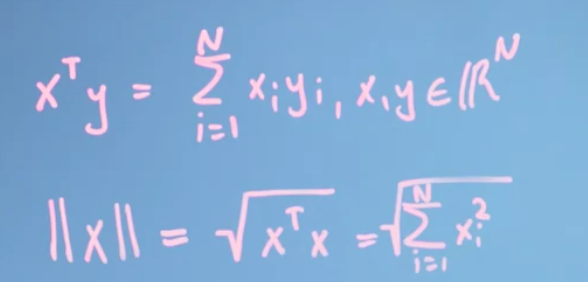 xᵀy = ∑_{i=1}^{N} xᵢyᵢ, x,y ∈ ℝᴺ
‖x‖ = √(xᵀx) = √(∑_{i=1}^{N} xᵢ²)